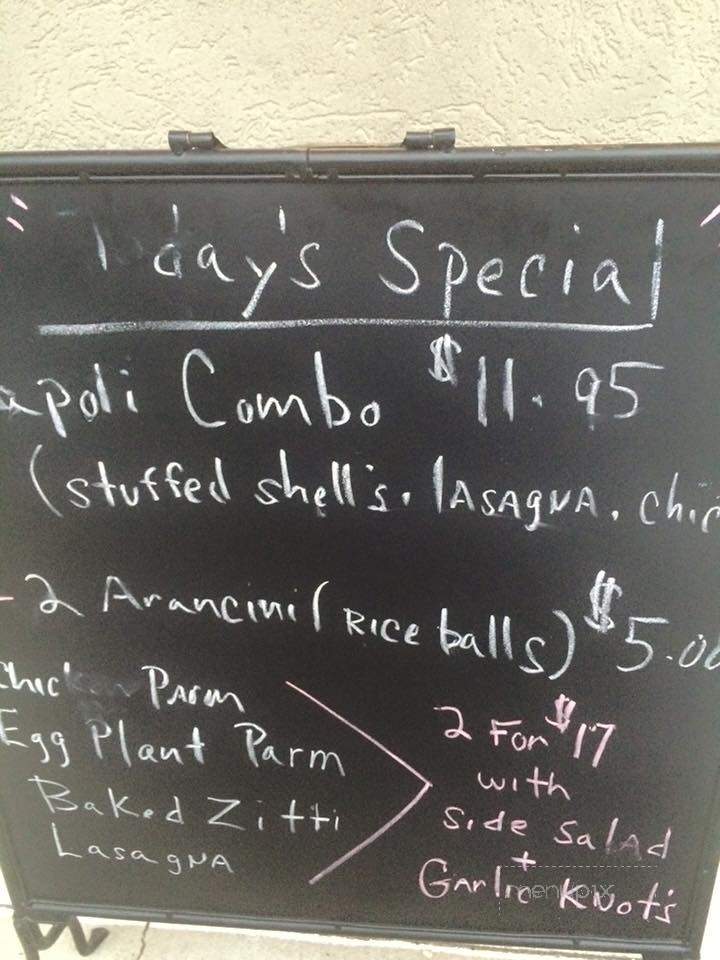 day's Special
apoli Combo $11.95
(stuffed shell's. lASAgNA. chic
- 2 Arancini (Rice balls) $5.00
chicken Parm
Egg Plant Parm
Baked Zitti
Lasagna
2 For $17
with
side salad
+
Garlic Knot's
menupix